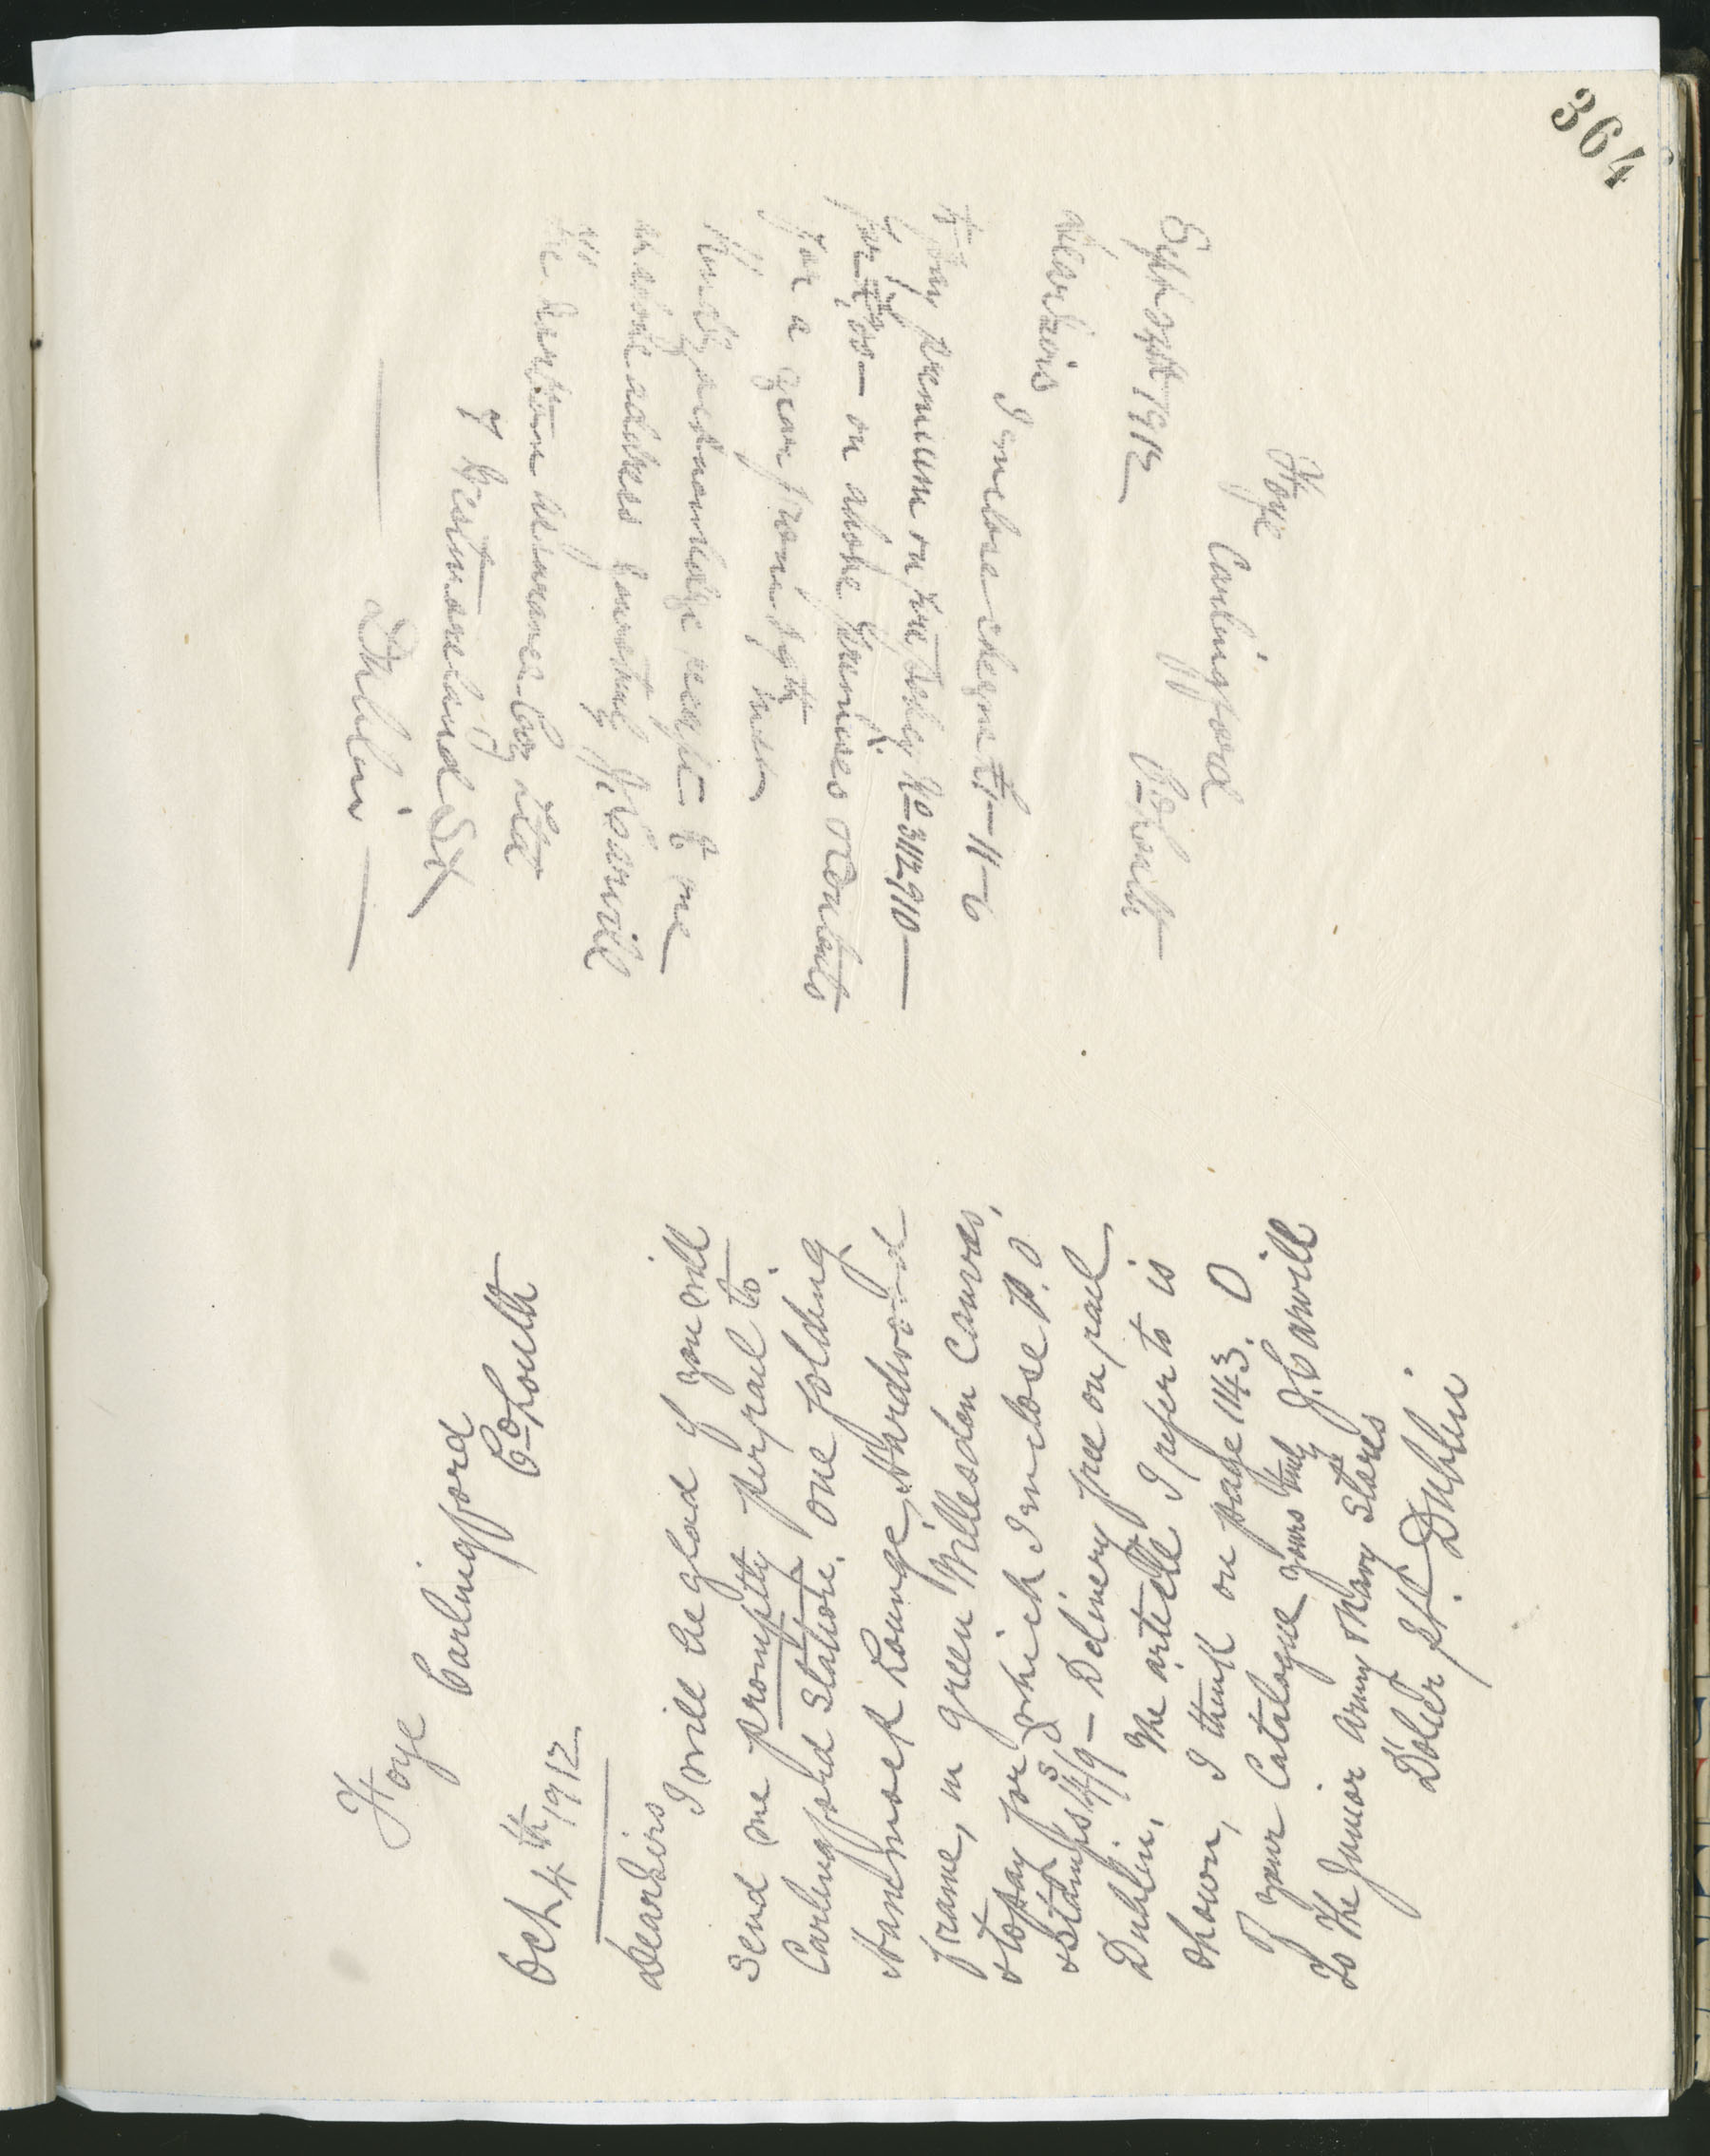 364
Foye
Carlingford
Co Louth
Sept 1912
Dear Sirs
I enclose cheque £1-11-6
to pay premium on Fire Policy No 3112910
for £ on above premises & contents
for a year from 29th inst
Kindly acknowledge receipt to me
at above address yours truly J. Carvill
The London Assurance Coy Ltd
7 Westmoreland St
Dublin
Foye
Carlingford
Co Louth
Oct 4th 1912
Dear Sirs
I will be glad if you will
send me promptly per rail to
Carlingford Station. One folding
Hammock Lounge, Hardwood
frame, in green Willesden Canvas,
& to pay for which I enclose P.O
& stamps 4s/9d - Delivery free on rail
Dublin. The article I refer to is
shown, I think on page 1143. O
of your Catalogue yours truly J. Carvill
To The Junior Army & Navy Stores
D'Olier St. Dublin